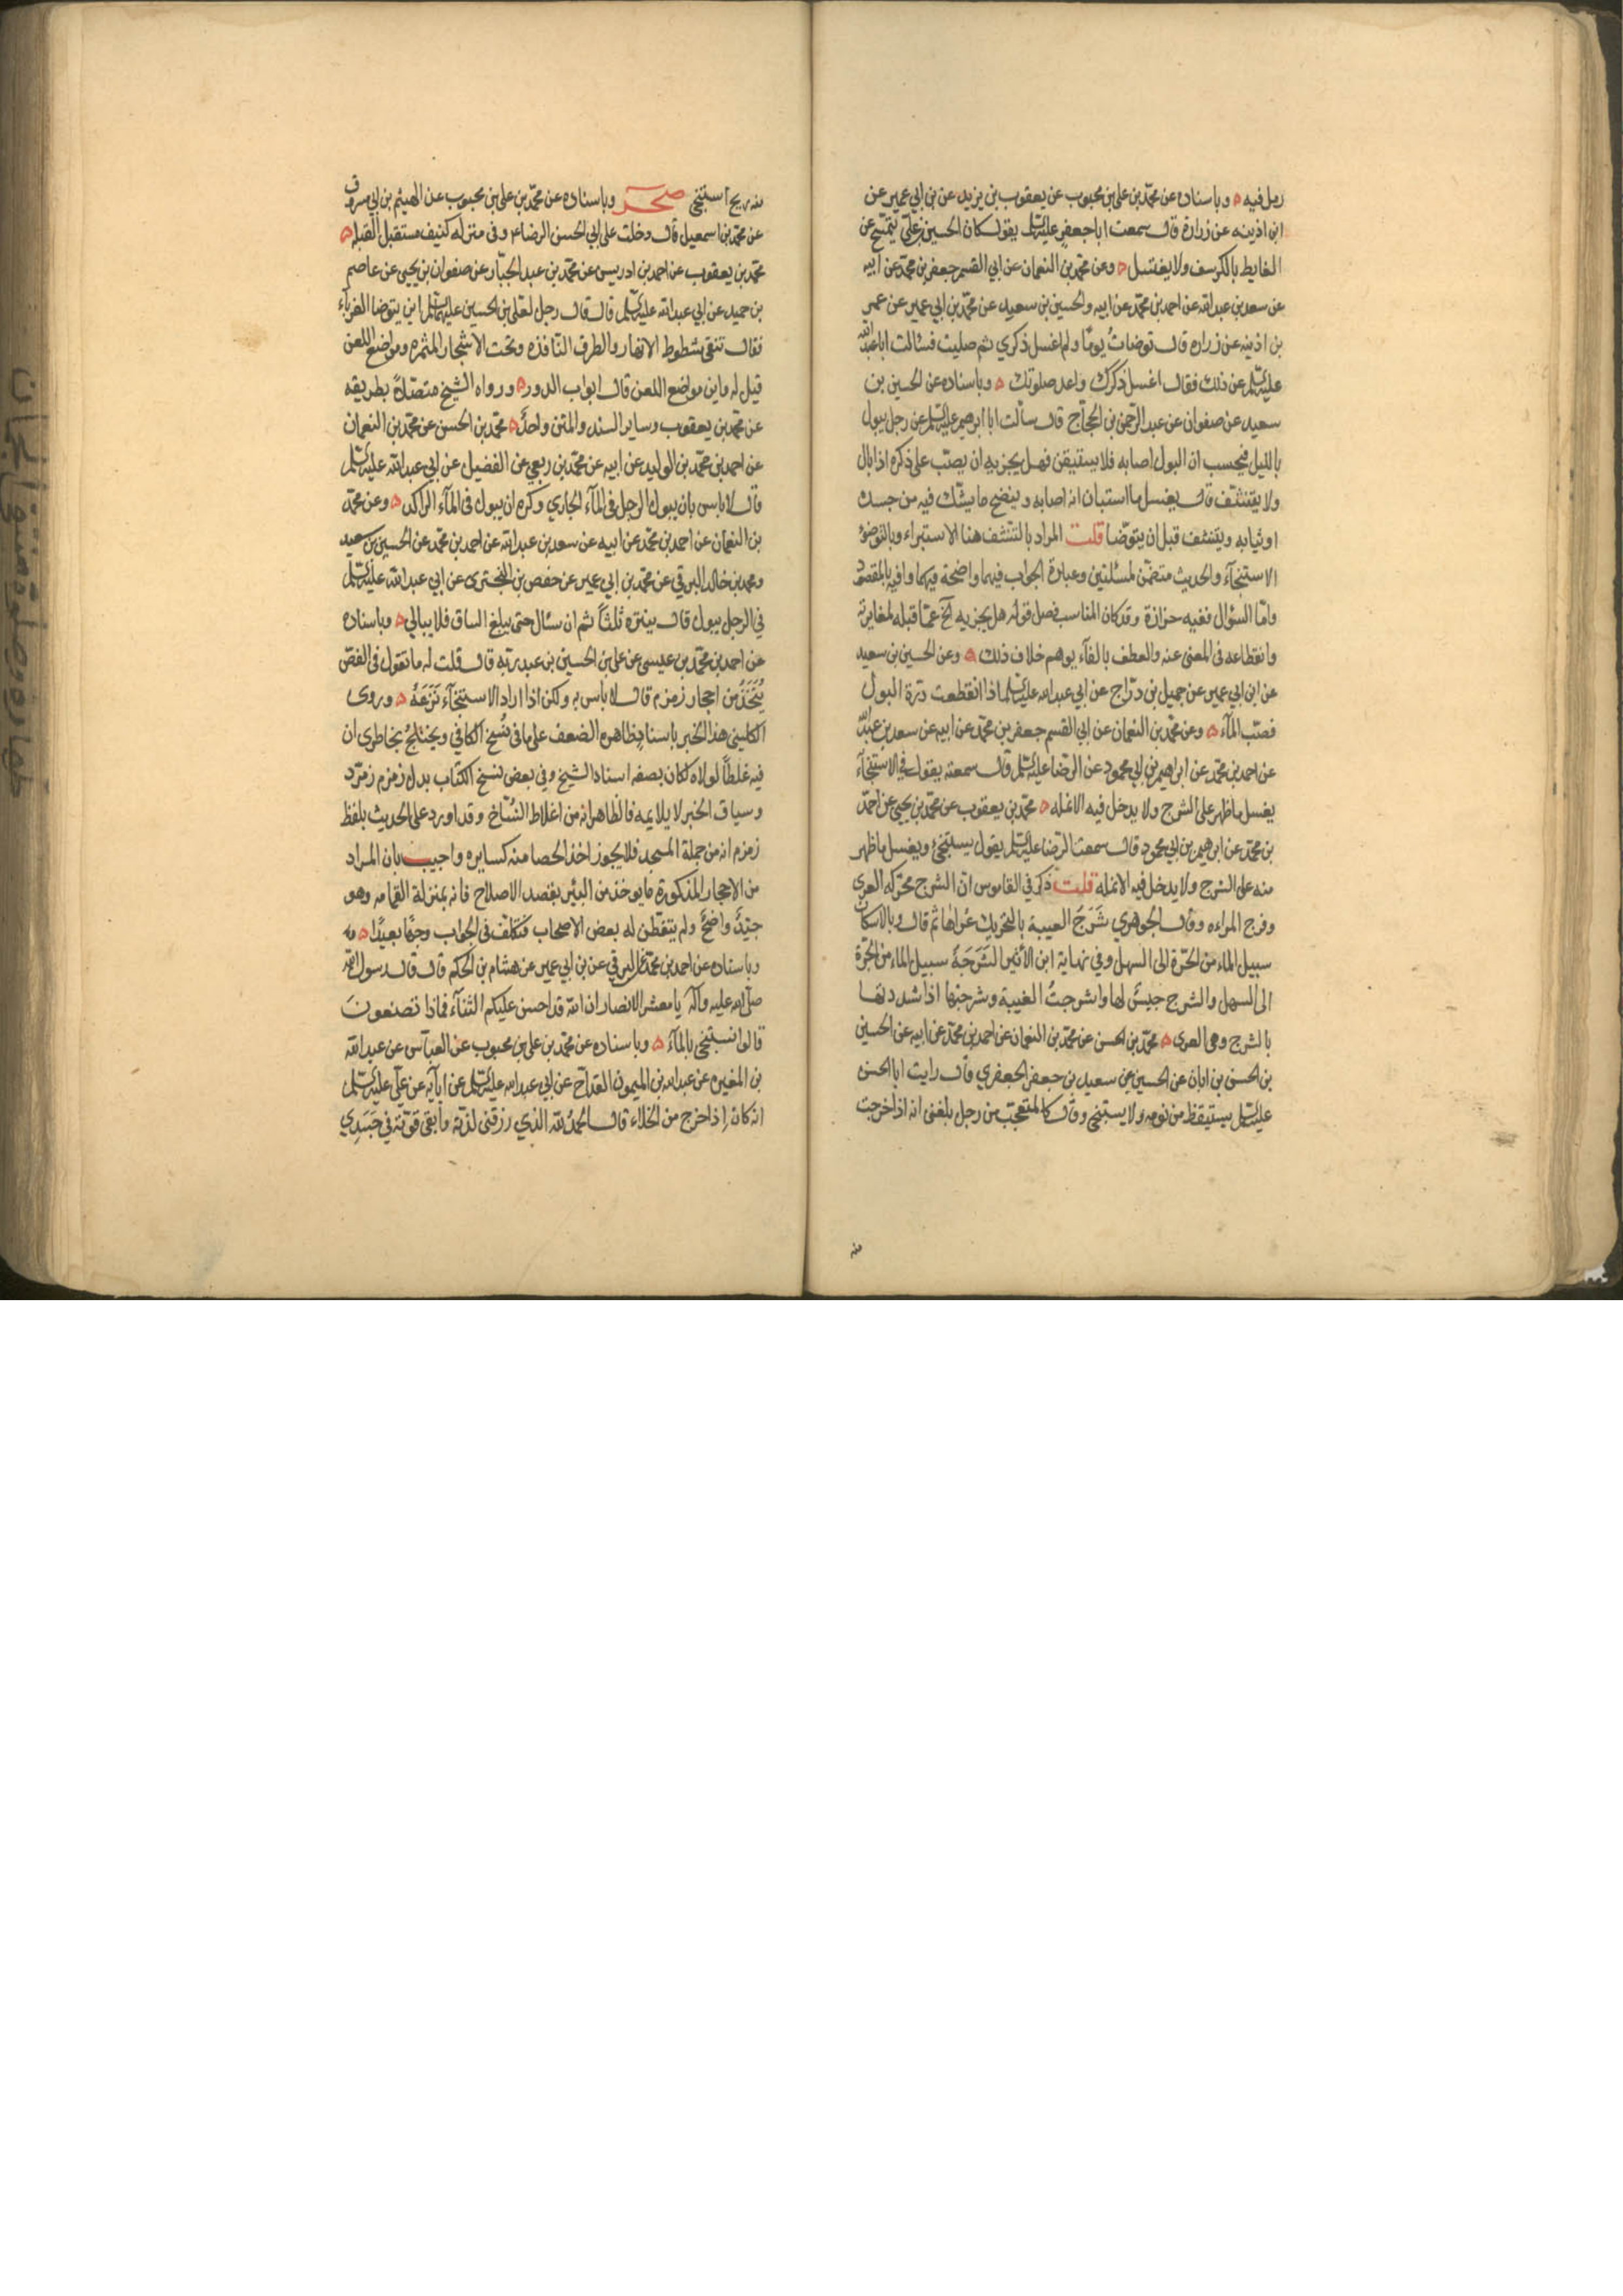 رمل فيه ه وباسناده عن محمد بن على بن محبوب عن يعقوب بن يزيد عن بن ابي عمير عن
ابن اذينه عن زرارة قال سمعت ابا جعفر عليه السلم يقول كان الحسين بن على يتمسح عن
الغايط بالكرسف ولا يغتسل ه وعن محمد بن النعمان عن ابي القسم جعفر بن محمد عن ابيه
عن سعد بن عبد الله عن احمد بن محمد عن ابيه والحسين بن سعيد عن محمد بن ابي عمير عن عمر
بن اذينه عن زراره قال توضات يوما ولم اغسل ذكري ثم صليت فسئالت ابا عبد الله
عليه السلم عن ذلك فقال اغسل ذكرك واعد صلوتك ه وباسناده عن الحسين بن
سعيد عن صفوان عن عبد الرحمن بن الحجاج قال سألت ابا ابرهيم عليه السلم عن رجل يبول
بالليل فيحسب ان البول اصابه فلا يستيقن فهل يجزيه ان يصب على ذكره اذا بال
ولا يتنشف قال يغسل ما استبان انه اصابه وينضح ما يشك فيه من جسده
او ثيابه ويتنشف قبل ان يتوضا قلت المراد بالتنشف هنا الاستبراء وبالتوضؤ
الاستنجاء والحديث متضمن لمسئلتين وعبارة الجواب فيهما واضحة وافية بالمقصود
واما السؤال ففيه حزازة وقد كان المناسب فصل قوله هل يجزيه الخ عما قبله لمغايرته
وانقطاعه فى المعنى عنه والعطف بالفآء يوهم خلاف ذلك ه وعن الحسين بن سعيد
عن ابن ابي عمير عن جميل بن دراج عن ابي عبد الله عليه السلم اذا انقطعت درة البول
فصب المآء ه وعن محمد بن النعمان عن ابي القسم جعفر بن محمد عن ابيه عن سعد بن عبد الله
عن احمد بن محمد عن ابراهيم بن ابي محمود عن الرضا عليه السلم قال سمعته يقول في الاستنجآء
يغسل ما ظهر على الشرج ولا يدخل فيه الانمله ه محمد بن يعقوب عن محمد بن يحيى عن احمد
بن محمد عن ابرهيم بن ابي محمود قال سمعت الرضا عليه السلم يقول يستنجئ ويغسل ما ظهر
منه على الشرج ولا يدخل فيه الانمله قلت ذكر في القاموس ان الشرج محركه العرى
وفرج المراءه وقال الجوهري شرج العيبة بالتحريك عراها ثم قال وبالاسكان
سبيل الماء من الحرة الى السهل وفي نهاية ابن الأثير الشرجة سبيل الماء من الحرة
الى السهل والشرج جنس لها واشرجت العيبة وشرجتها اذا شددتها
بالشرج وهى العرى ه محمد بن الحسن عن محمد بن النعمان عن احمد بن محمد عن ابيه عن الحسين
بن الحسن بن ابان عن الحسين عن سعيد بن جعفر الجعفري قال رايت ابا الحسن
عليه السلم يستيقظ من نومه ولا يستنجى وقال كالمتعجب من رجل بلغنى انه اذا خرجت
منه
منه ريح استنجى صحر وباسناده عن محمد بن على بن محبوب عن الهيثم بن ابي مسروق
عن محمد بن اسمعيل قال دخلت على ابي الحسن الرضا ع وفى منزله كنيف مستقبل القبله ه
محمد بن يعقوب عن احمد بن ادريس عن محمد بن عبد الجبار عن صفوان بن يحيى عن عاصم
بن حميد عن ابي عبد الله عليه السلم قال قال رجل لعلى بن الحسين عليهما السلم اين يتوضا الغرباء
فقال تتقى شطوط الانهار والطرق النافذه وتحت الاشجار المثمره ومواضع اللعن
قيل له واين مواضع اللعن قال ابواب الدور ه ورواه الشيخ متصلا بطريقه
عن محمد بن يعقوب وساير السند والمتن واحد ه محمد بن الحسن عن محمد بن النعمان
عن احمد بن محمد بن الوليد عن ابيه عن محمد بن ربعي عن الفضيل عن ابي عبد الله عليه السلم
قال لا باس بان يبول الرجل في المآء الجاري وكره ان يبول فى المآء الراكد ه وعن محمد
بن النعمان عن احمد بن محمد عن ابيه عن سعد بن عبد الله عن احمد بن محمد عن الحسين بن سعيد
ومحمد بن خالد البرقي عن محمد بن ابي عمير عن حفص بن البخترى عن ابي عبد الله عليه السلم
في الرجل يبول قال ينتره ثلثا ثم ان سئال حتى يبلغ الساق فلا يبالي ه وباسناده
عن احمد بن محمد بن عيسى عن على بن الحسين بن عبد ربه قال قلت له ما تقول فى الفص
يتخذ من احجار زمزم قال لا باس به ولكن اذا اراد الاستنجآء نزعه ه وروى
الكلينى هذا الخبر باسناد ظاهره الضعف على ما فى نسخ الكافي ويختلج بخاطرى ان
فيه غلطا لولاه لكان بصفه اسناد الشيخ وفي بعض نسخ الكتاب بدل زمزم زمرد
وسياق الخبر لا يلايمه فالظاهر انه من اغلاط النساخ وقد اورد على الحديث بلفظ
زمزم انه من جملة المسجد فلا يجوز اخذ الحصا منه كسايره واجيب بان المراد
من الاحجار المذكورة ما يوخذ من البئر بقصد الاصلاح فانه بمنزلة القمامه وهو
جيد واضح ولم يتفطن له بعض الاصحاب فتكلف فى الجواب وجها بعيدا ه
وباسناده عن احمد بن محمد عن البرقي عن بن ابي عمير عن هشام بن الحكم قال قال رسول الله
صلى الله عليه وآله يا معشر الانصار ان الله قد احسن عليكم الثناء فماذا تصنعون
قالوا نستنجى بالمآء ه وباسناده عن محمد بن على بن محبوب عن العباس عن عبد الله
بن المغيره عن عبد الله بن الميمون القداح عن ابي عبد الله عليه السلم عن ابآيه عن على عليه السلم
انه كان اذا خرج من الخلاء قال الحمد لله الذي رزقنى لذته وأبقى قوته في جسدي